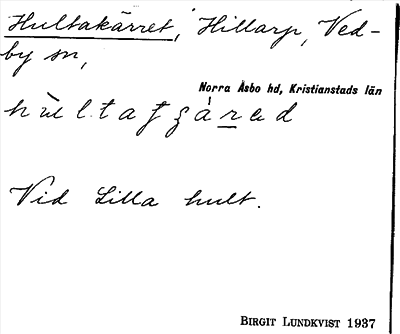 Hultakärret, Hillarp, Ved-
by sn,
Norra Åsbo hd, Kristianstads län
Vid Lilla hult.
BIRGIT LUNDKVIST 1937